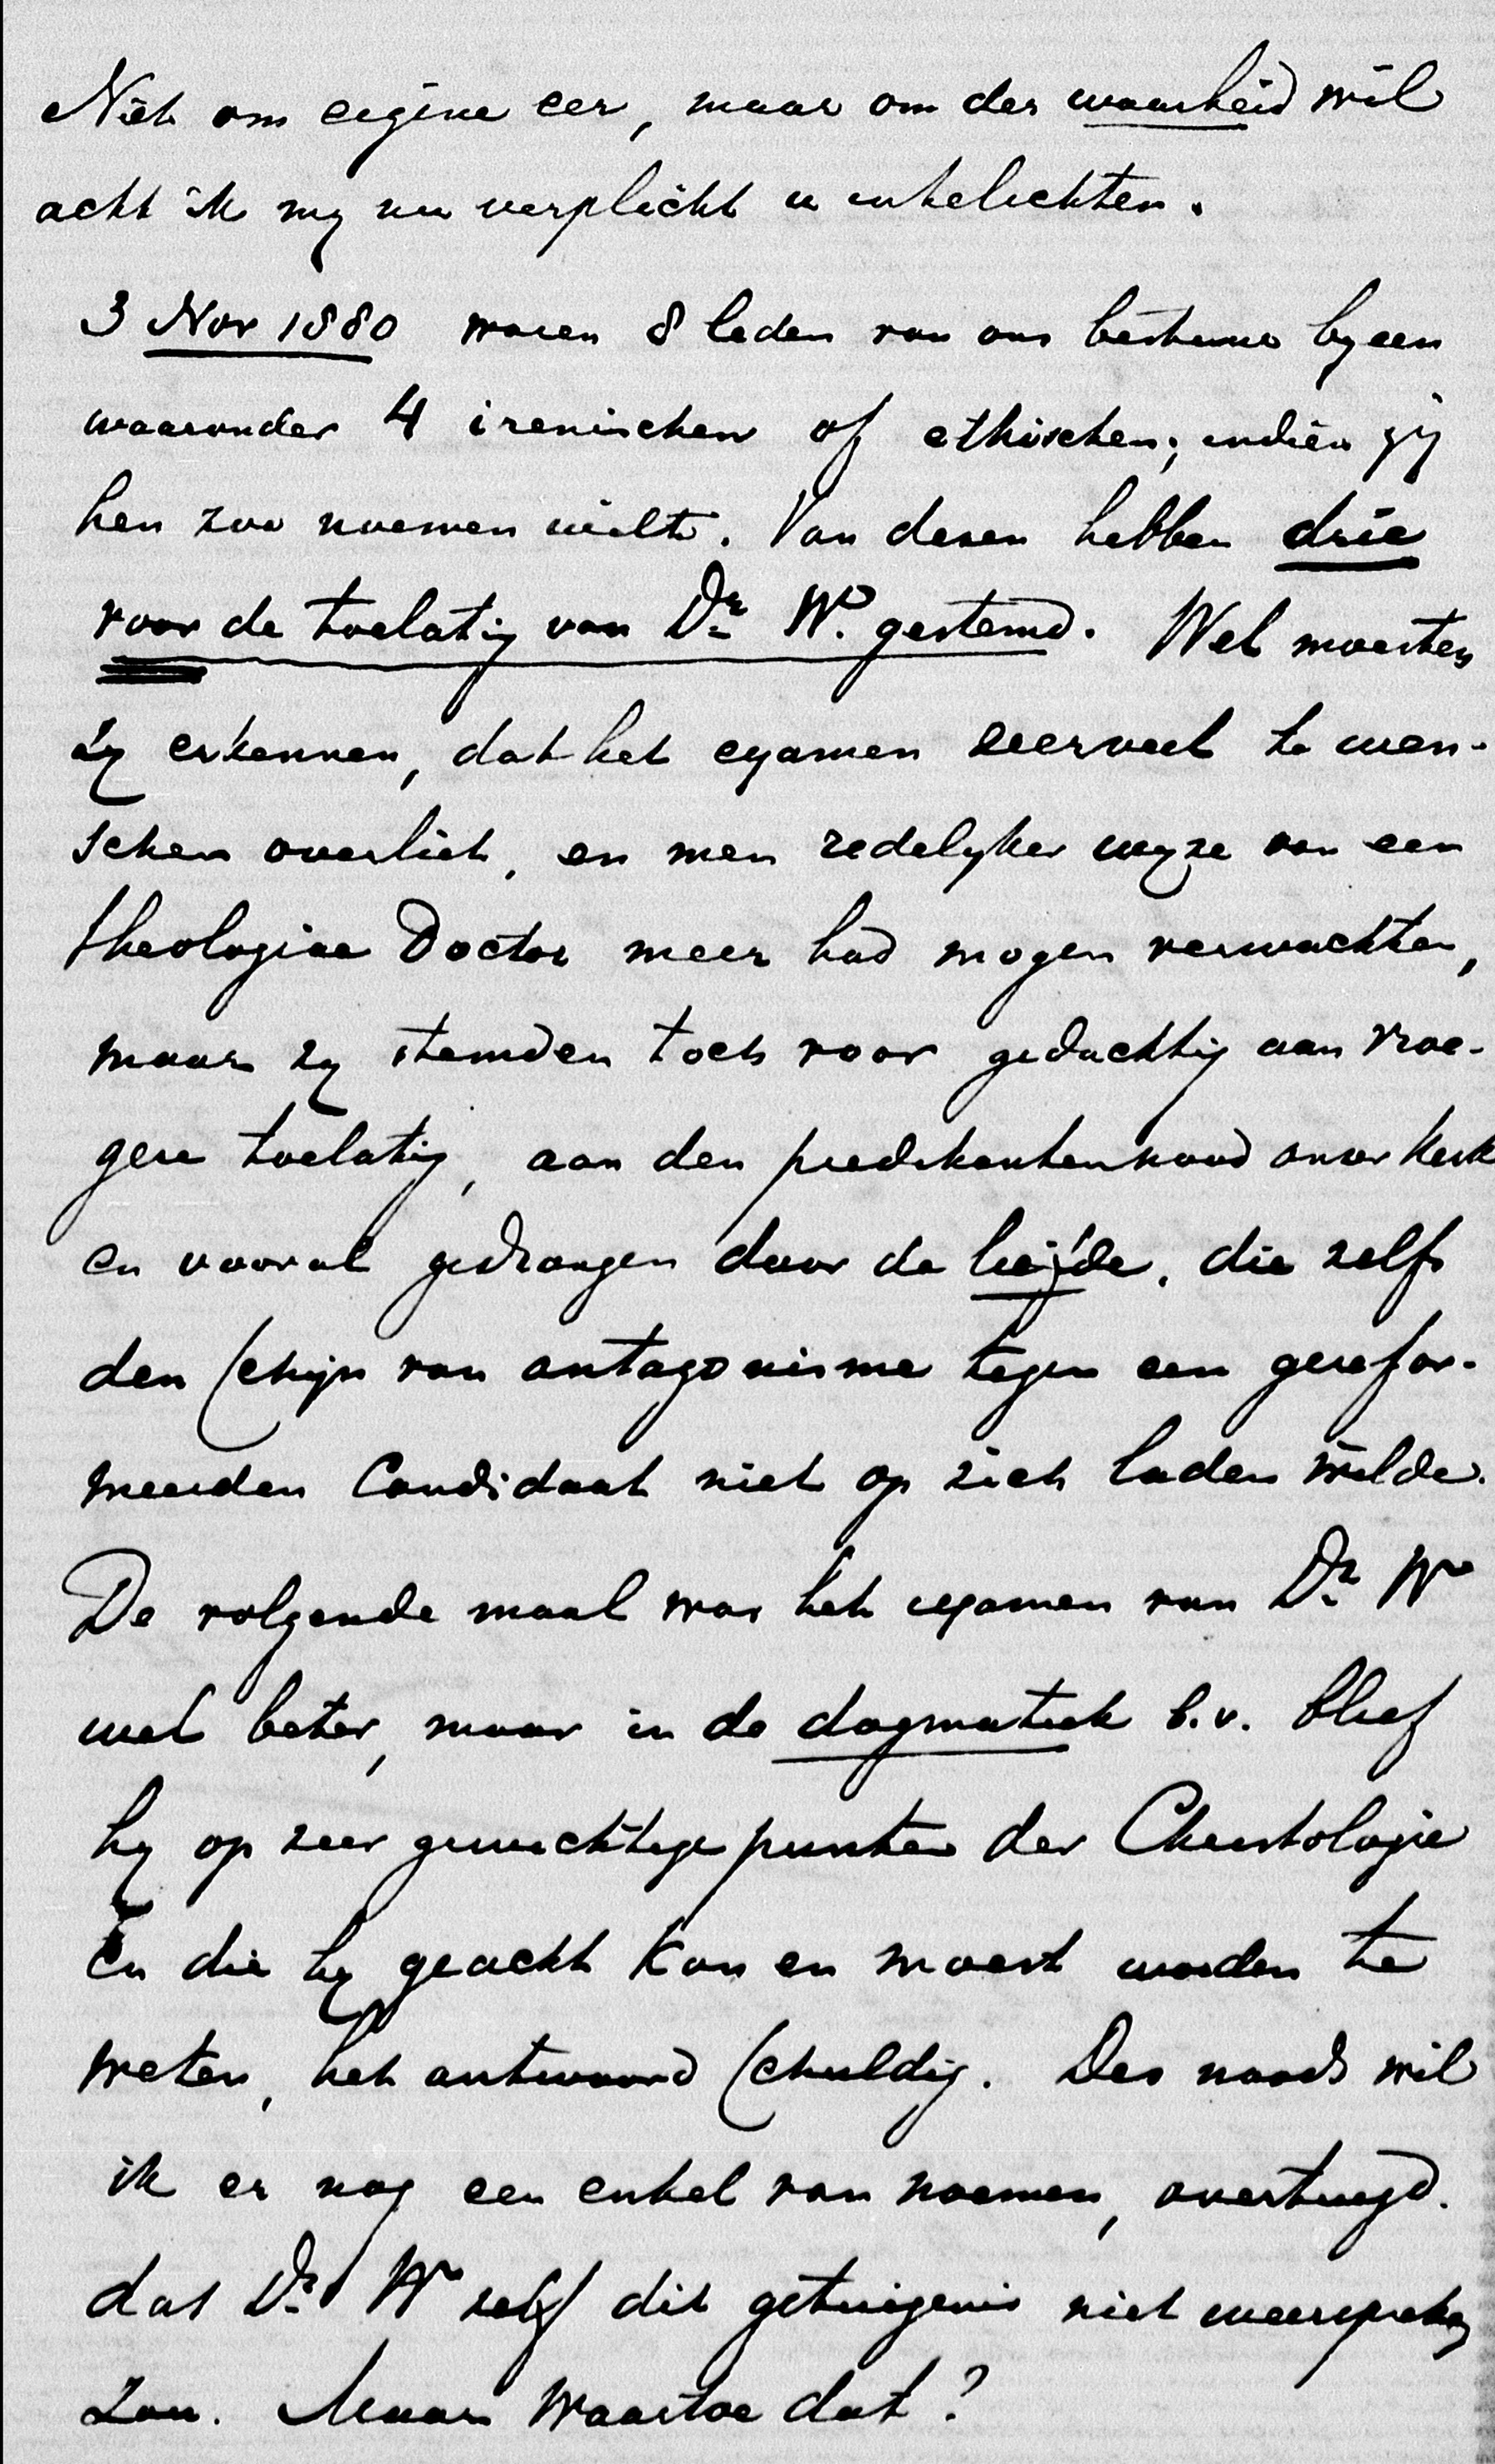 Niet om eigene eer, maar om der waarheid wil
acht ik my nu verplicht u in te lichten.
3 Nov 1880 waren 8 leden van ons bestuur byeen
waaronder 4 irenischen of ethischen, indien gij
hen zoo noemen wilt. Van dezen hebben drie
voor de toelating van Dr. W. gestemd. Wel moesten
zy erkennen, dat het examen zeer veel te wen-
schen overliet, en men redelyker wyze van een
theologiae Doctor meer had mogen verwachten,
maar zy stemden toch voor gedachtig aan vroe-
gere toelating, aan den predikantennood onzer kerk
en vooral gedrongen door de liefde, die zelfs
den schijn van antagonisme tegen een gerefor-
meerden Candidaat niet op zich laden wilde.
De volgende maal was het examen van Dr. W
wel beter, maar in de dogmatiek b.v. bleef
hy op zeer gewichtige punten der Christologie
en die hy geacht kon en moest worden te
weten, het antwoord schuldig. Des noods wil
ik er nog een enkel van noemen, overtuigd.
dat Dr. W zelf dit getuigenis niet weerspreken
zou. Maar waartoe dat?